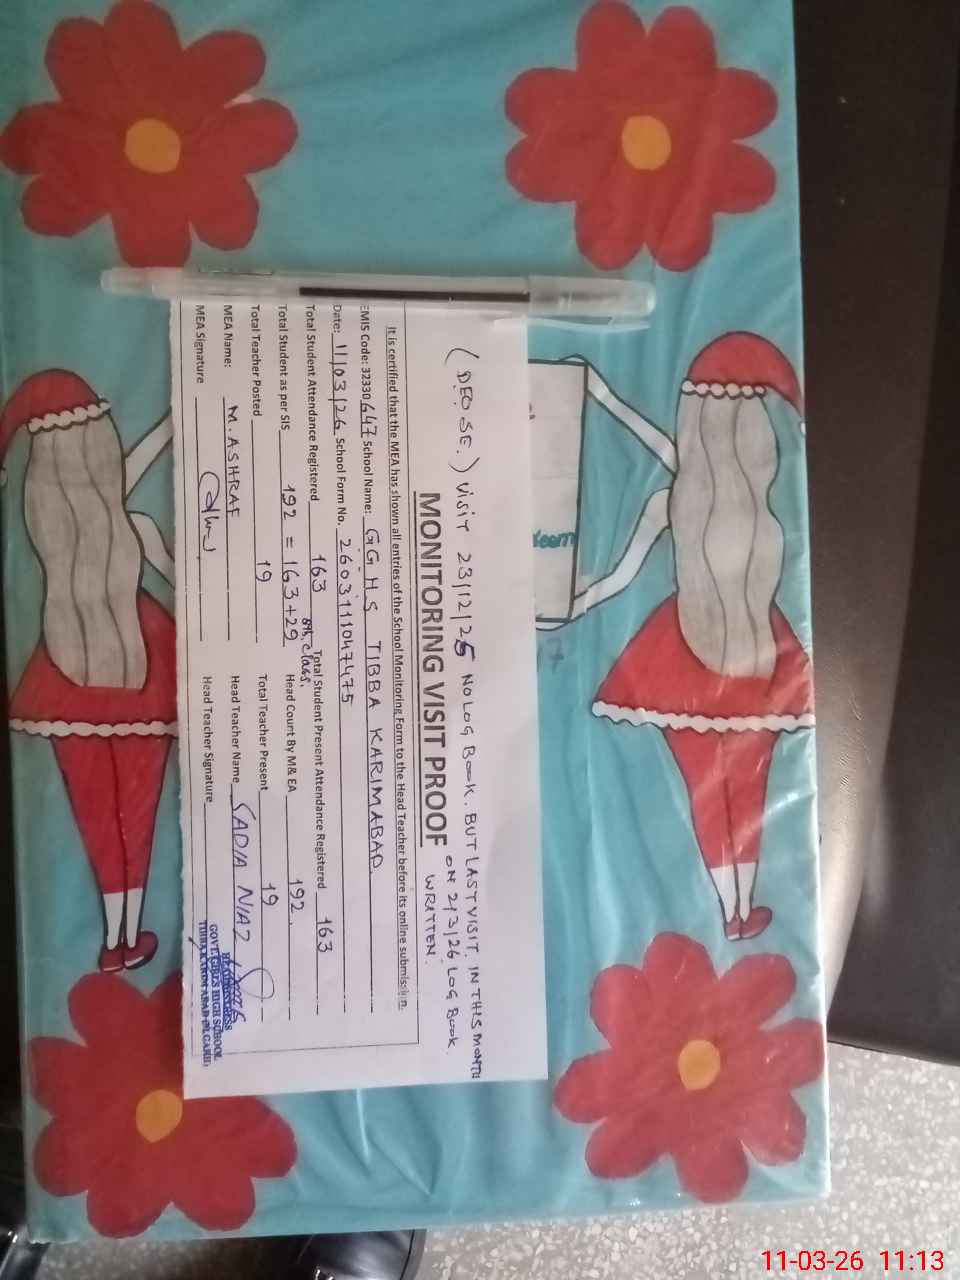 (DEO SE.) VISIT 23/12/25 NO LOG BOOK. BUT LAST VISIT. IN THIS MONTH
ON 2/3/26 LOG BOOK
WRITTEN.
MONITORING VISIT PROOF
It is certified that the MEA has shown all entries of the School Monitoring Form to the Head Teacher before its online submission.
EMIS Code: 32330647 School Name: GGHS TIBBA KARIMABAD.
Date: 11/03/26 School Form No. 2603111047475
Total Student Attendance Registered 163 Total Student Present Attendance Registered 163
Total Student as per SIS 192 = 163+29 Head Count By M& EA 192.
class.
Total Teacher Posted 19 Total Teacher Present 19
MEA Name: M. ASHRAF Head Teacher Name SADIA NIAZ
MEA Signature Head Teacher Signature
HEADMISTRESS
GOVT. GIRLS HIGH SCHOOL
TIBBA KARIM ABAD
11-03-26 11:13